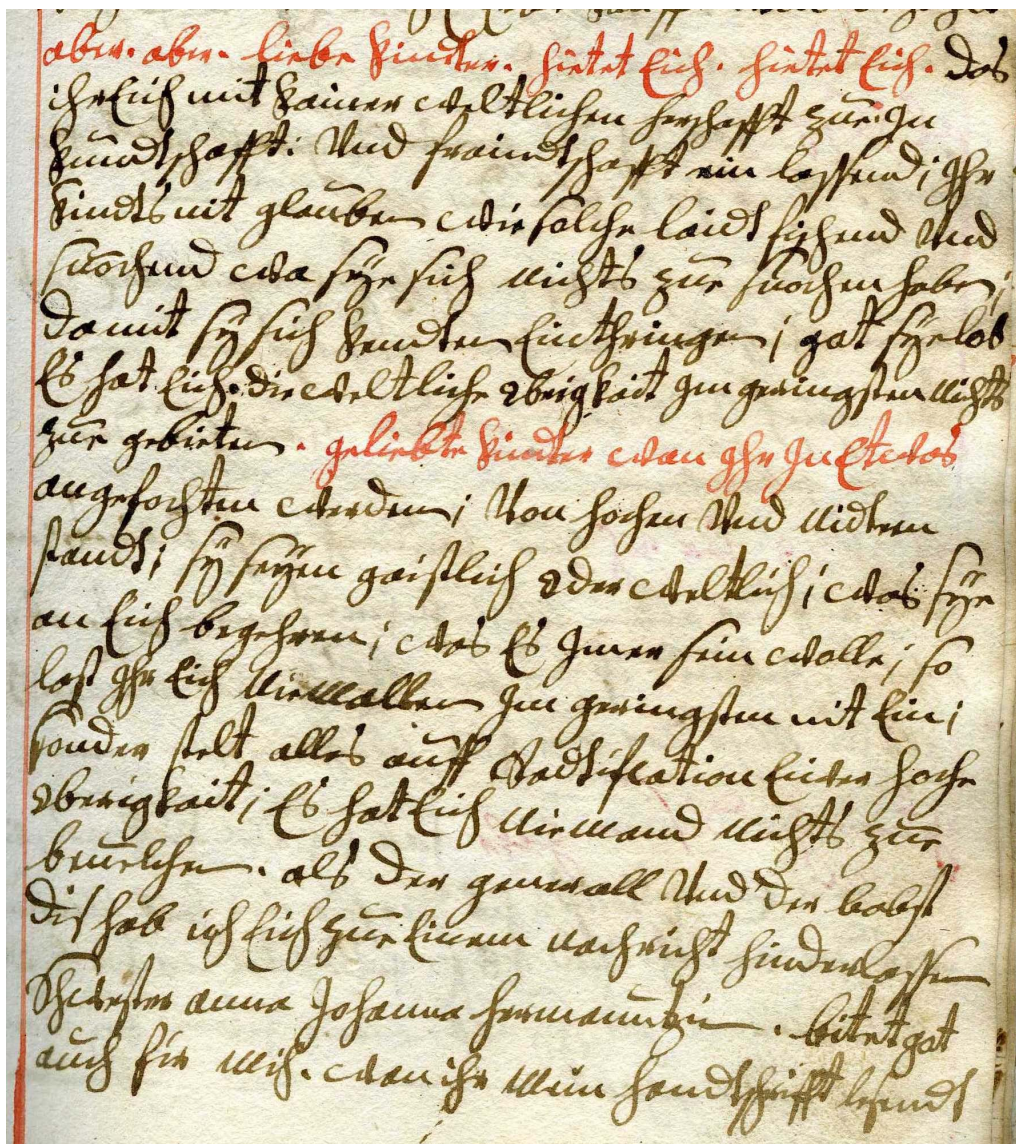 aber. aber. liebe kinder. hietet Eich. hietet Eich. das
ihr Eich mit kainer weltlichen herschafft zue: In
kundtschafft: Und fraindtschafft ein lassend; Ihr
kindts nit glauben wie solche laidt sischend Und
suochend wa sye sich nichts zue suochen haben;
damit sy sich kendten Einthringen; gat sye los
Es hat Eich. die weltliche obrigkait Im geringsten nichts
zue gebieten. geliebte kinder wan Ihr In Etwas
angefochten werden; Von hochen Und nidern
standt; sy seyen gaistlich oder weltlich; was sye
an Eich begehren; was Es Imer sein wolle; so
last Ihr Eich niemallen Im geringsten nit Ein;
sonder stelt alles auff Eiwer hoche
oberigkait; Es hat Eich niemand nichts zue
beuelchen. als der generall Und der babst
dis hab ich Eich zue Einem nachricht hinderlassen
Schwester anna Johanna hermannin. bitet gat
auch fir mich. wan ihr mein handtschrifft lesendt